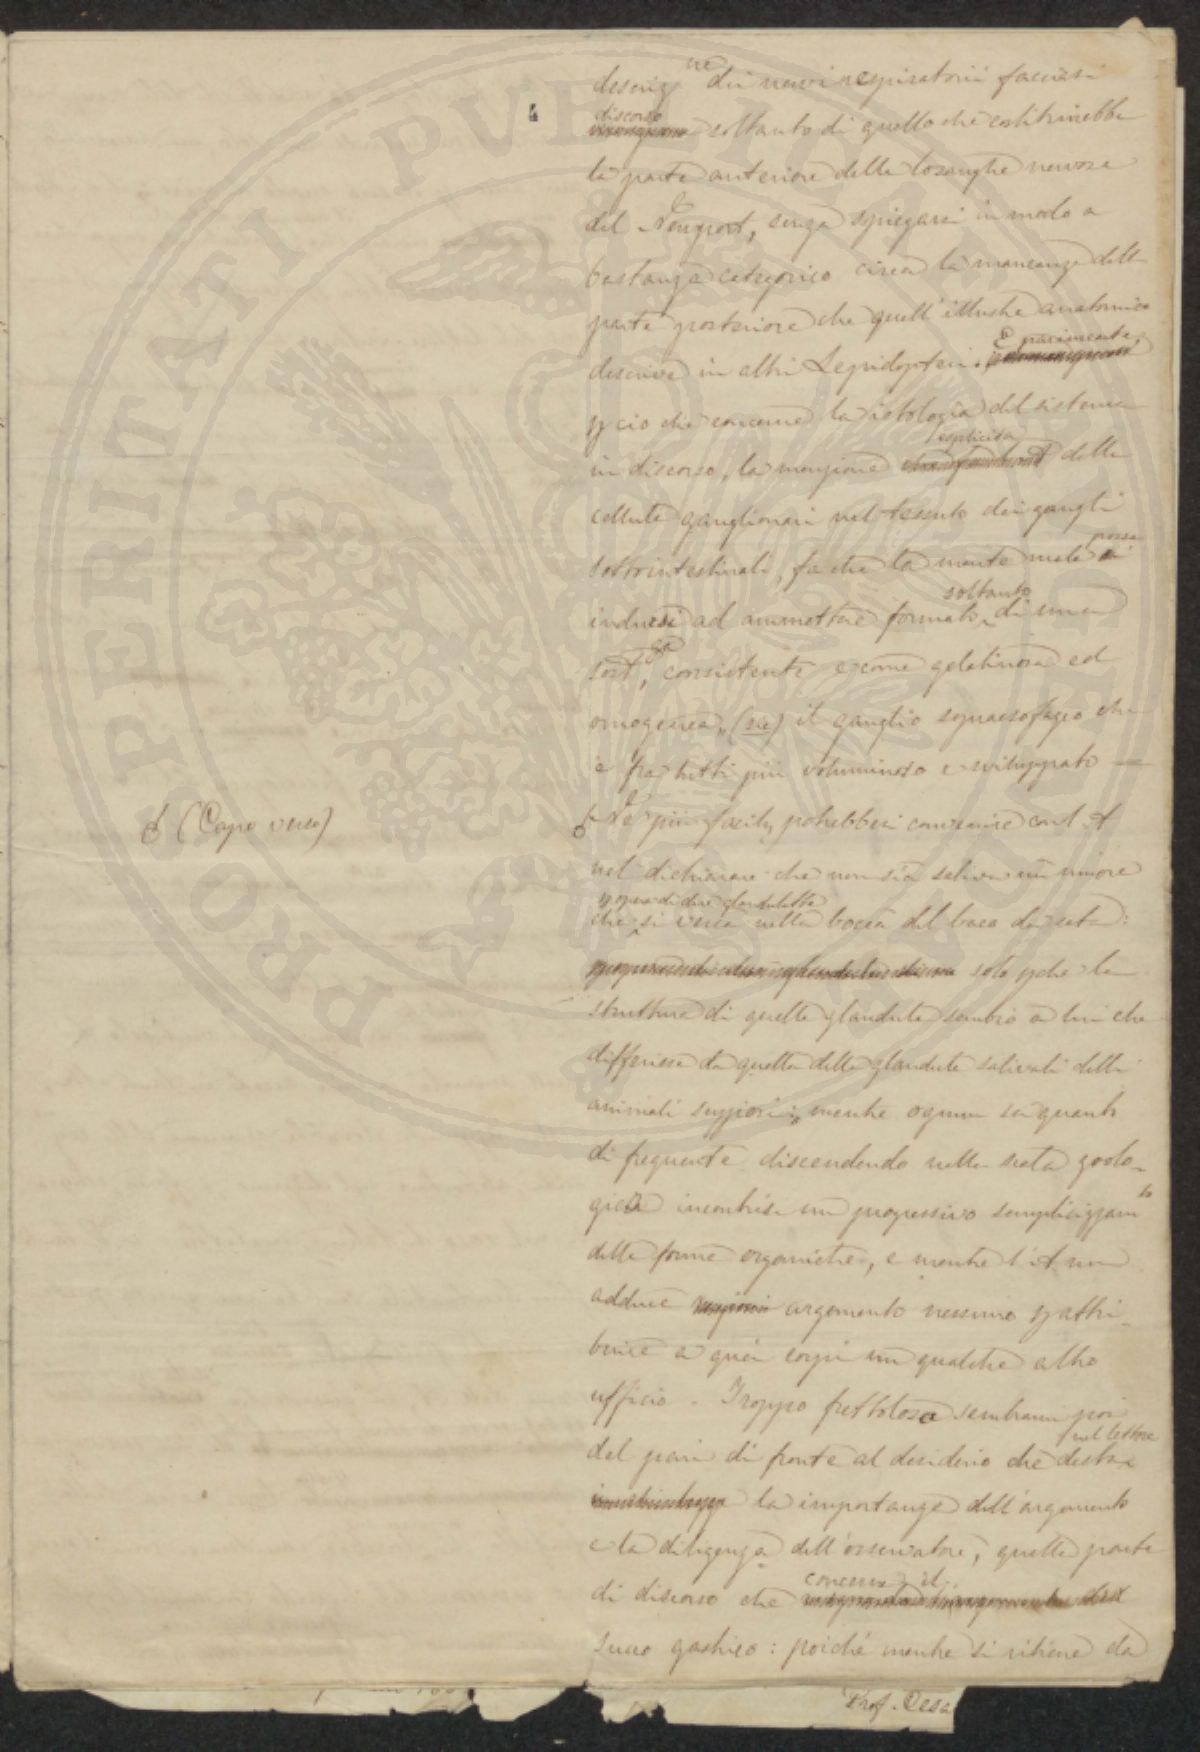 descriz.ne dei nervi respiratorii facciasi
discorso soltanto di quello che costituirebbe
la parte anteriore delle losanghe nervose
del Newport, senza spiegarsi in modo a
bastanza categorico circa la mancanza della
parte posteriore che quell'illustre anatomico
descrive in altri Lepidopteri. E parimente,
p ciò che concerne la istologia del sistema
in discorso, la menzione esplicita delle
cellule ganglionari nel tessuto dei gangli
sottintestinali, fa che la mente male possa
indursi ad ammettere formato soltanto di una
sost.za consistente e come gelatinosa ed
omogenea, (sic) il ganglio sopraesofageo che
è fra tutti più voluminoso e sviluppato —
(Capo verso)
Nè più facile potrebbesi convenire coll'A
nel dichiarare che non sia saliva un umore
che p opera di due glandulette si versa nella bocca del baco da seta:
solo pche la
struttura di quelle glandule sembrò a lui che
differisse da quella delle glandule salivali delli
animali superiori; mentre ognun sa quanto
di frequente discendendo nella scala zoolo-
gica incontrisi un progressivo semplicizzamto
delle forme organiche, e mentre l'A non
adduce argomento nessuno p attri-
buire a quei corpi un qualche altro
ufficio - Troppo frettolosa sembrami poi
del pari di fronte al desiderio che desta nel lettore
la importanza dell'argomento
e la diligenza dell'osservatore, quella parte
di discorso che concerne il
succo gastrico: poichè mentre si ritiene da
Prof. Cesa
PROPERITATI PVBLICAE